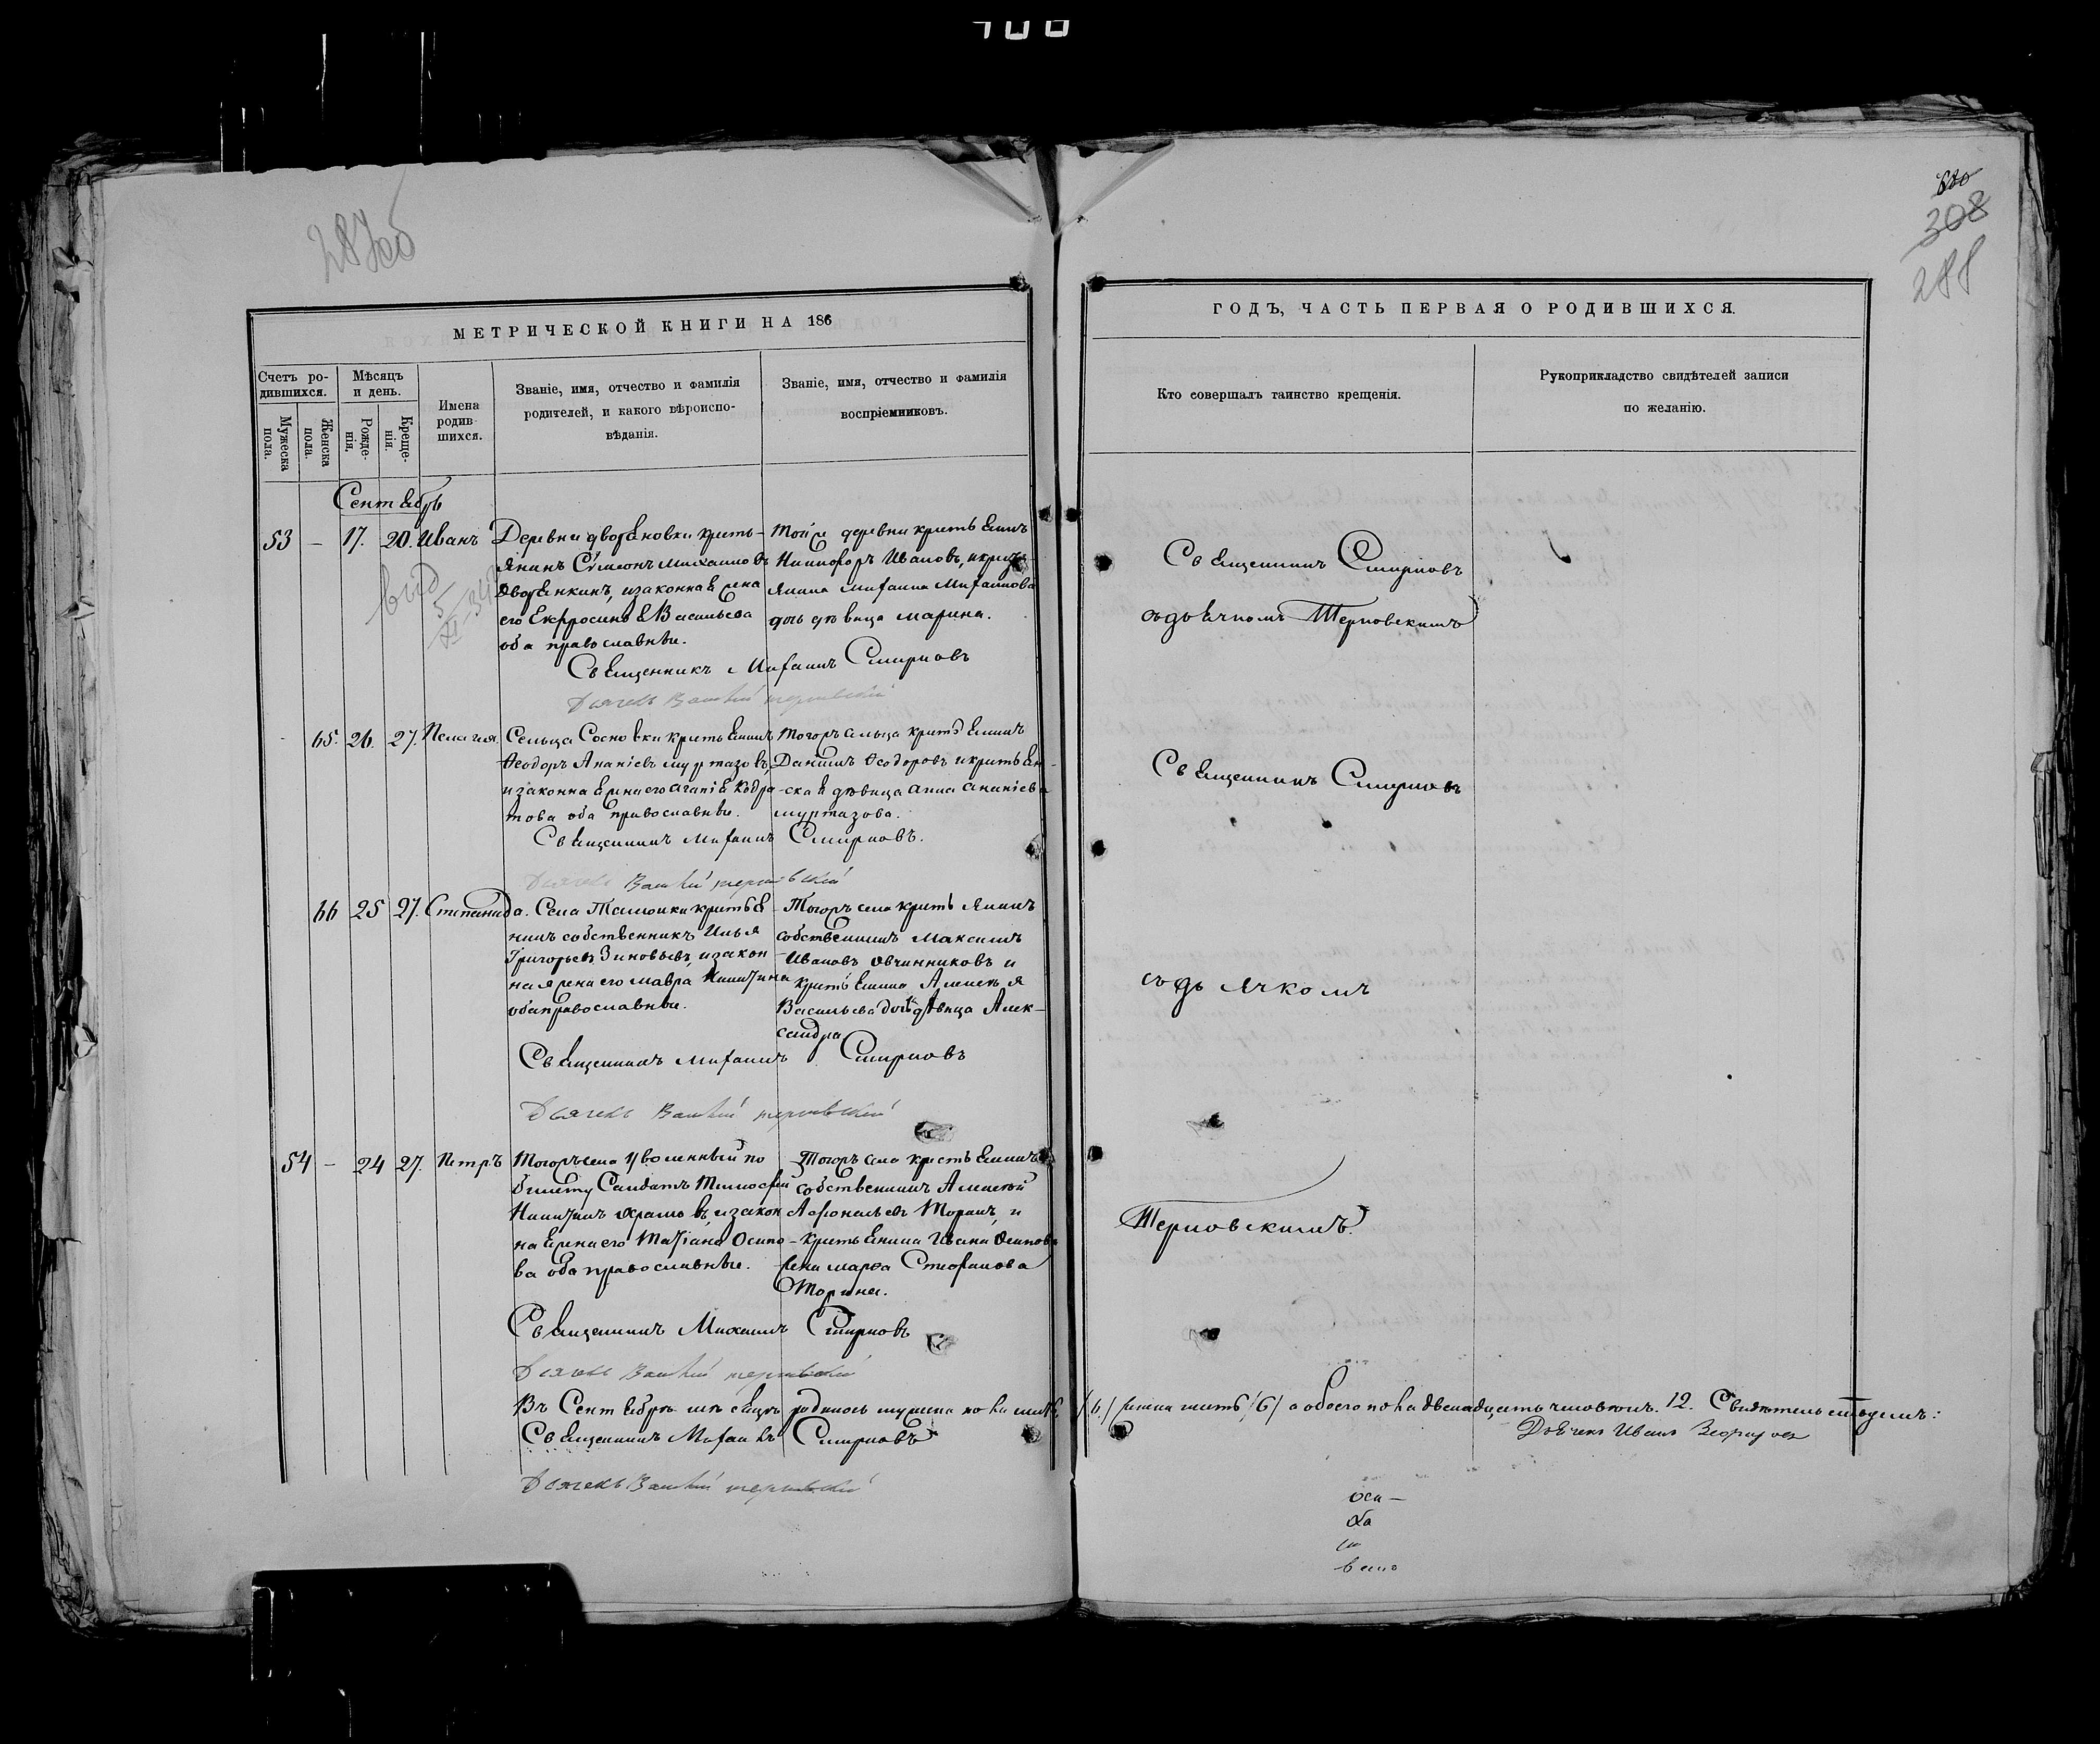 287об
МЕТРИЧЕСКОЙ КНИГИ НА 186
Счетъ ро-
дившихся.
Мужеска
пола.
Женска
пола.
Мѣсяцъ
и день.
Рожде-
нія.
Креще-
нія.
Имена
родив-
шихся.
Званіе, имя, отчество и фамилія
родителей, и какого вѣроиспо-
вѣданія.
Званіе, имя, отчество и фамилія
воспріемниковъ.
Сентябрь
53 – 17. 20. Иванъ
Деревни Дворяновки кресть-
янинъ Сѵмеонъ Михаиловъ
Дворянкинъ, и законная жена
его Екфросинья Васильева
оба православные.
Той же деревни крестьянинъ
Никифоръ Ивановъ, и кресть
янина Михаила Михаилова
дочь дѣвица Марина.
Священникъ Михаилъ Смирновъ
Дьячекъ Василій Терновскій
65. 26. 27. Пелагія.
Сельца Сосновки крестьянинъ
Ѳеодоръ Ананіевъ Муртазовъ,
и законная жена его Агапія Кодра
това оба православные.
Тогожъ сельца крестьянинъ
Даніилъ Ѳеодоровъ и крестьян-
ская дѣвица Анна Ананіева
Муртазова.
Священникъ Михаилъ Смирновъ.
Дьячекъ Василій Терновскій
66 25 27. Степанида.
Села крестья
нинъ собственникъ Илья
Григорьевъ Зиновьевъ, и закон
ная жена его Мавра Никитина
оба православные.
Тогожъ села крестьянинъ
собственникъ Максимъ
Ивановъ Овчинниковъ и
крестьянина Алексѣя
Васильева дочь дѣвица Алек-
сандра
Священникъ Михаилъ Смирновъ
Дьячекъ Василій Терновскій
54 – 24 27. Петръ
Тогожъ села уволенный по
билету Солдатъ Тимофей
Никитинъ Храмовъ, и закон
ная жена его Татіана Осипо-
ва оба православные.
Тогожъ села крестьянинъ
собственникъ Алексѣй
Афонасьевъ Торинъ, и
крестьянина Ивана Осипова
жена Марѳа Стефанова
Торина.
Священникъ Михаилъ Смирновъ
Дьячекъ Василій Терновскій
Въ Сентябрѣ мѣсяцѣ родилось мужеска пола шесть
Священникъ Михаилъ Смирновъ
Дьячекъ Василій Терновскій
308
288
ГОДЪ, ЧАСТЬ ПЕРВАЯ О РОДИВШИХСЯ.
Кто совершалъ таинство крещенія.
Рукоприкладство свидѣтелей записи
по желанію.
Священникъ Смирновъ
съ дьячкомъ Терновскимъ
Священникъ Смирновъ
съ дьячкомъ
Терновскимъ.
/6/ женска шесть /6/ а обоего пола двенадцать человѣкъ. 12. Свидѣтельствуемъ:
Дьячекъ Иванъ